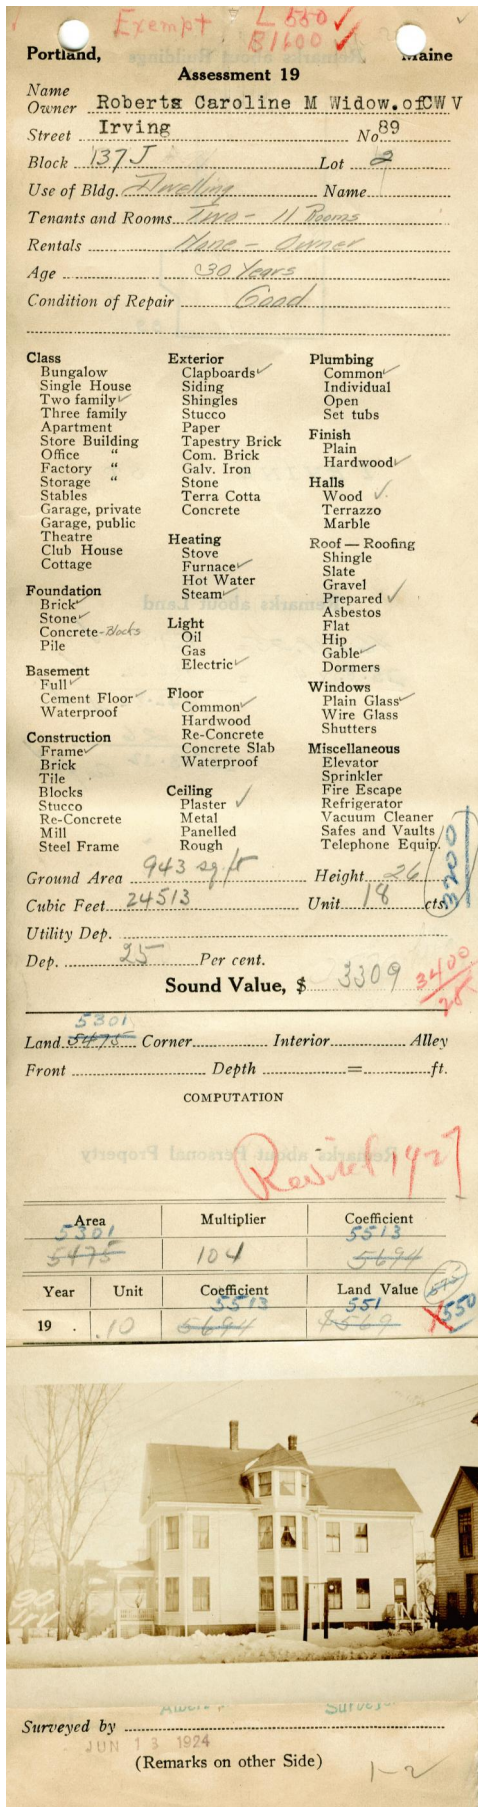 Exempt L 550 ✓
B1600 ✓
Portland, Maine
Assessment 19
Name
Owner Roberts Caroline M Widow.ofCW V
Street Irving No 89
Block 137 J Lot 2
Use of Bldg. Dwelling Name
Tenants and Rooms Two - 11 Rooms
Rentals None - Owner
Age 30 Years
Condition of Repair Good
Class
Bungalow
Single House
Two family ✓
Three family
Apartment
Store Building
Office "
Factory "
Storage "
Stables
Garage, private
Garage, public
Theatre
Club House
Cottage
Foundation
Brick ✓
Stone ✓
Concrete-Blocks
Pile
Basement
Full ✓
Cement Floor ✓
Waterproof
Construction
Frame ✓
Brick
Tile
Blocks
Stucco
Re-Concrete
Mill
Steel Frame
Exterior
Clapboards ✓
Siding
Shingles
Stucco
Paper
Tapestry Brick
Com. Brick
Galv. Iron
Stone
Terra Cotta
Concrete
Heating
Stove
Furnace ✓
Hot Water
Steam ✓
Light
Oil
Gas
Electric ✓
Floor
Common ✓
Hardwood
Re-Concrete
Concrete Slab
Waterproof
Ceiling
Plaster ✓
Metal
Panelled
Rough
Plumbing
Common ✓
Individual
Open
Set tubs
Finish
Plain
Hardwood ✓
Halls
Wood ✓
Terrazzo
Marble
Roof — Roofing
Shingle
Slate
Gravel
Prepared ✓
Asbestos
Flat
Hip
Gable ✓
Dormers
Windows
Plain Glass ✓
Wire Glass
Shutters
Miscellaneous
Elevator
Sprinkler
Fire Escape
Refrigerator
Vacuum Cleaner
Safes and Vaults
Telephone Equip.
3200
Ground Area 943 sq.ft Height 26
Cubic Feet 24513 Unit 18 cts.
Utility Dep.
Dep. 25 Per cent.
Sound Value, $ 3309
3400
28
5301
Land 5475 Corner Interior Alley
Front Depth = ft.
COMPUTATION
1927
Area Multiplier Coefficient
5301 5513
5475 104 5694
Year Unit Coefficient Land Value 575
5513 551 550
19 . .10 5694 $569
90
Irv
Surveyed by
JUN 13 1924
(Remarks on other Side)
1-2